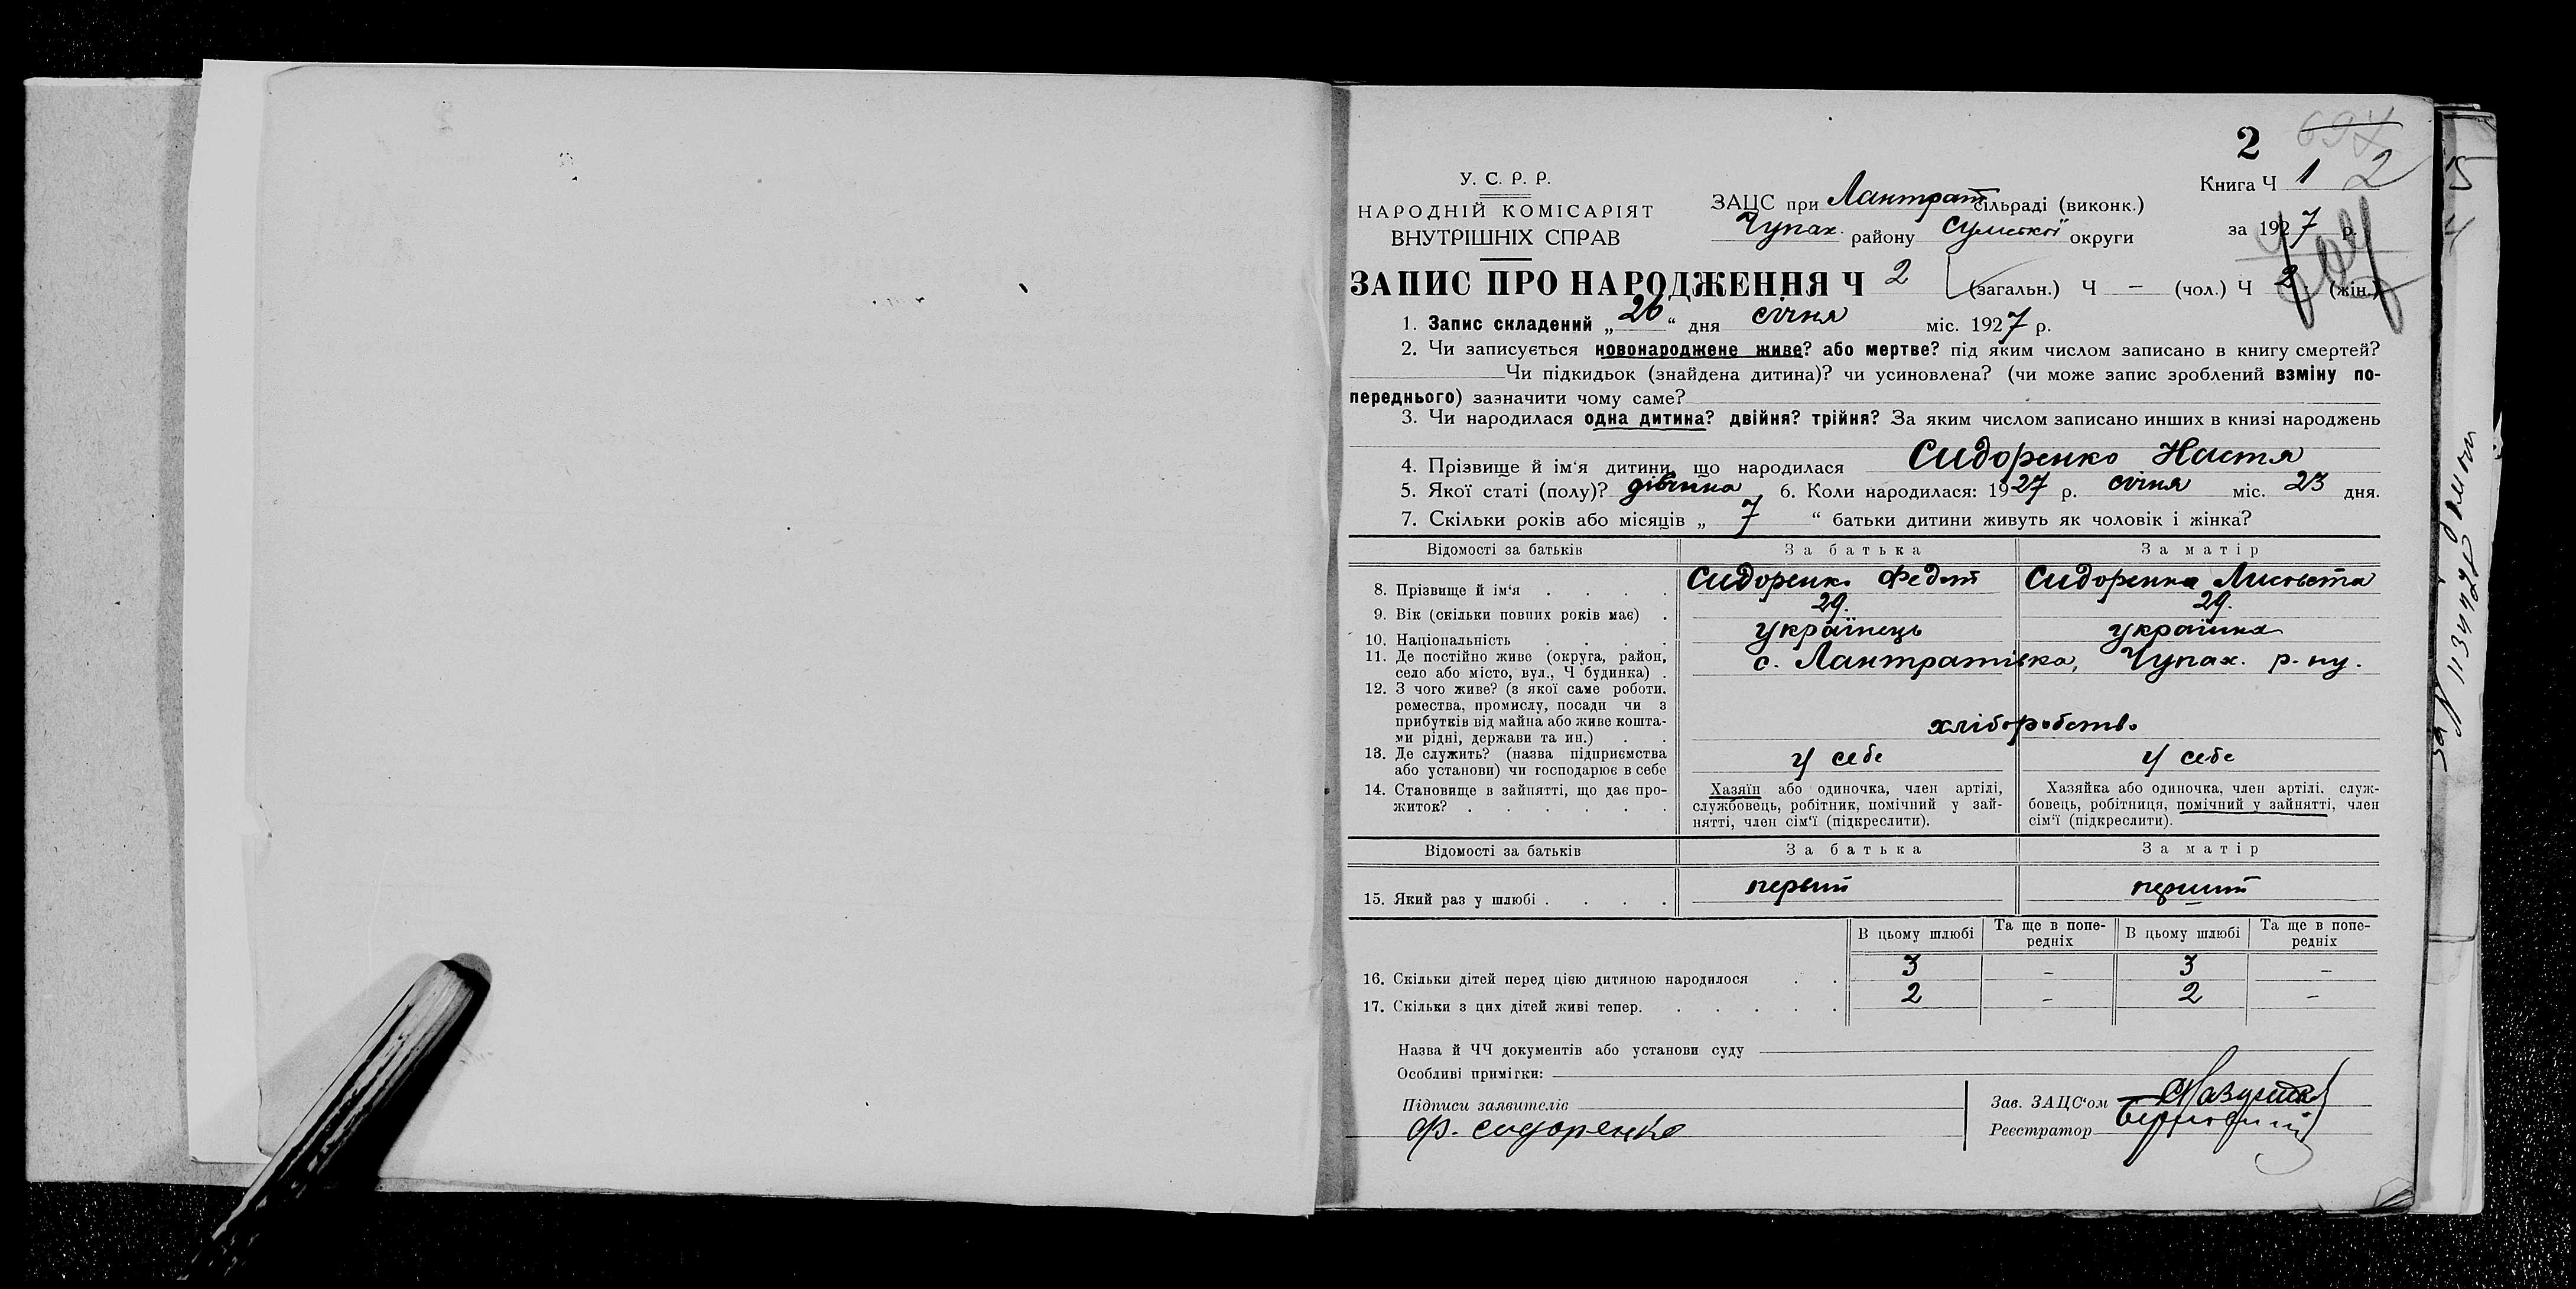 2
Книга Ч 1 2
У. С. Р. Р.
НАРОДНІЙ КОМІСАРІЯТ
ВНУТРІШНІХ СПРАВ
ЗАЦС при Лантрат сільраді (виконк.)
Чупах. району Сумської округи
за 1927 р.
ЗАПИС ПРО НАРОДЖЕННЯ Ч 2 (загальн.) Ч — (чол.) Ч 2 (жін.)
1. Запис складений „26“ дня січня міс. 1927 р.
2. Чи записується новонароджене живе? або мертве? під яким числом записано в книгу смертей?
Чи підкидьок (знайдена дитина)? чи усиновлена? (чи може запис зроблений взміну по-
переднього) зазначити чому саме?
3. Чи народилася одна дитина? двійня? трійня? За яким числом записано инших в книзі народжень
4. Прізвище й ім‘я дитини, що народилася Сидоренко Настя
5. Якої статі (полу)? дівчина 6. Коли народилася: 1927 р. січня міс. 23 дня.
7. Скільки років або місяців „ 7 “ батьки дитини живуть як чоловік і жінка?
Відомості за батьків За батька За матір
8. Прізвище й ім‘я . . . . Сидоренко Федот Сидоренка Лисовета
9. Вік (скільки повних років має) . 29. 29.
10. Національність . . . . українець українка
11. Де постійно живе (округа, район,
село або місто, вул., Ч будинка) . с. Лантратівка, Чупах. р-ну.
12. З чого живе? (з якої саме роботи,
ремества, промислу, посади чи з
прибутків від майна або живе кошта-
ми рідні, держави та ин.) . . хліборобство
13. Де служить? (назва підприємства
або установи) чи господарює в себе у себе у себе
14. Становище в зайнятті, що дає про-
житок? . . . . . .
Хазяїн або одиночка, член артілі,
службовець, робітник, помічний у зай-
нятті, член сім‘ї (підкреслити).
Хазяйка або одиночка, член артілі, служ-
бовець, робітниця, помічний у зайнятті, член
сім‘ї (підкреслити).
Відомості за батьків За батька За матір
15. Який раз у шлюбі . . . . первий перший
В цьому шлюбі Та ще в попе-
редніх В цьому шлюбі Та ще в попе-
редніх
16. Скільки дітей перед цією дитиною народилося . . 3 – 3 –
17. Скільки з цих дітей живі тепер. . . . . . 2 – 2 –
Назва й ЧЧ документів або установи суду
Особливі примітки:
Підписи заявителів
Ф. Сидоренко
Зав. ЗАЦС‘ом
Реєстратор